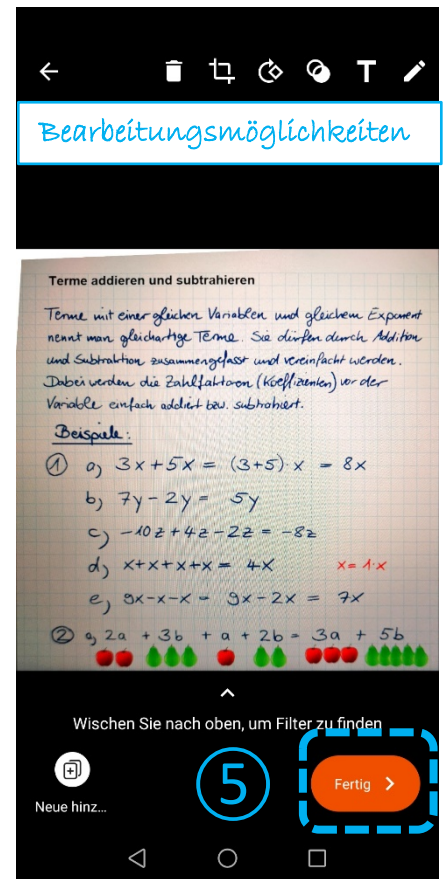 T
Bearbeitungsmöglichkeiten
Terme addieren und subtrahieren
Terme mit einer gleichen Variablen und gleichem Exponent
nennt man gleichartige Terme. Sie dürfen durch Addition
und Subtraktion zusammengefasst und vereinfacht werden.
Dabei werden die Zahlfaktoren (Koeffizienten) vor der
Variable einfach addiert bzw. subtrahiert.
Beispiele:
① a) 3x + 5x = (3+5)·x = 8x
b) 7y - 2y = 5y
c) -10z + 4z - 2z = -8z
d) x+x+x+x = 4x x = 1·x
e) 9x - x - x = 9x - 2x = 7x
② a) 2a + 3b + a + 2b = 3a + 5b
Wischen Sie nach oben, um Filter zu finden
Neue hinz...
5
Fertig